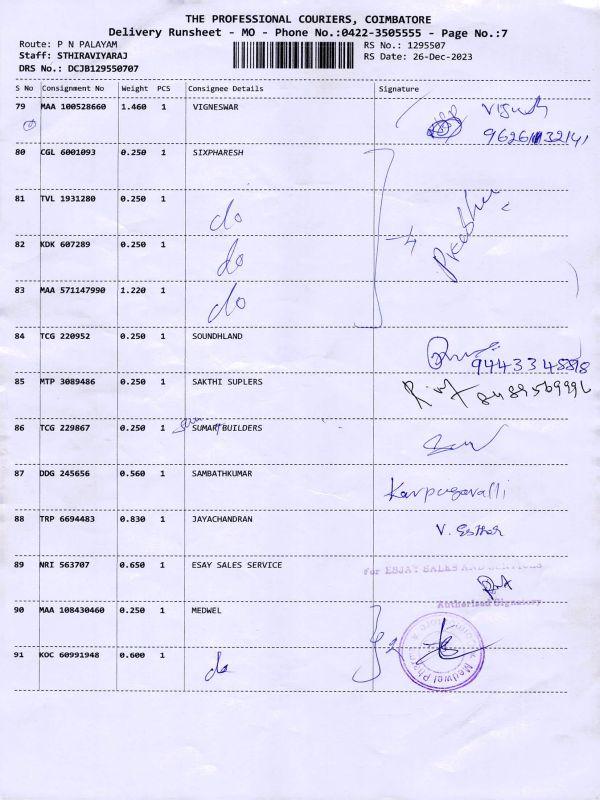 THE PROFESSIONAL COURIERS, COIMBATORE
Delivery Runsheet - MO - Phone No.:0422-3505555 - Page No.:7
Route: P N PALAYAM RS No.: 1295507
Staff: STHIRAVIYARAJ RS Date: 26-Dec-2023
DRS No.: DCJB129550707
S No Consignment No Weight PCS Consignee Details Signature
79 MAA 100528660 1.460 1 VIGNESWAR
80 CGL 6001093 0.250 1 SIXPHARESH
81 TVL 1931280 0.250 1 do
82 KDK 607289 0.250 1 do
4 Prabhu
83 MAA 571147990 1.220 1 do
84 TCG 220952 0.250 1 SOUNDHLAND
85 MTP 3089486 0.250 1 SAKTHI SUPLERS
86 TCG 229867 0.250 1 SUMAR BUILDERS
87 DDG 245656 0.560 1 SAMBATHKUMAR Karpugavalli
88 TRP 6694483 0.830 1 JAYACHANDRAN V. Esther
89 NRI 563707 0.650 1 ESAY SALES SERVICE
For ESJAY SALES AND SERVICES
Authorised Signatory
90 MAA 108430460 0.250 1 MEDWEL
2
91 KOC 60991948 0.600 1 do
Medwel